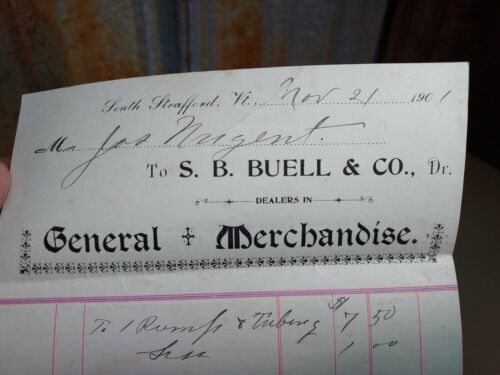 South Strafford, Vt., Nov 21 1901
M Jas Nugent.
To S. B. BUELL & CO., Dr.
DEALERS IN
General Merchandise.
To 1 Pump & Tubing $7 50
Less 1 00